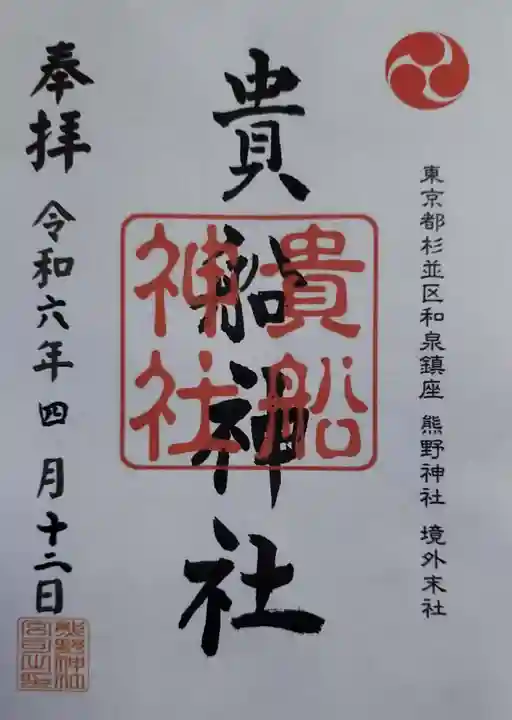 東京都杉並区和泉鎮座 熊野神社 境外末社
貴船神社
貴船
神社
奉拝
令和六年四月十二日
熊野神社
宮司之印